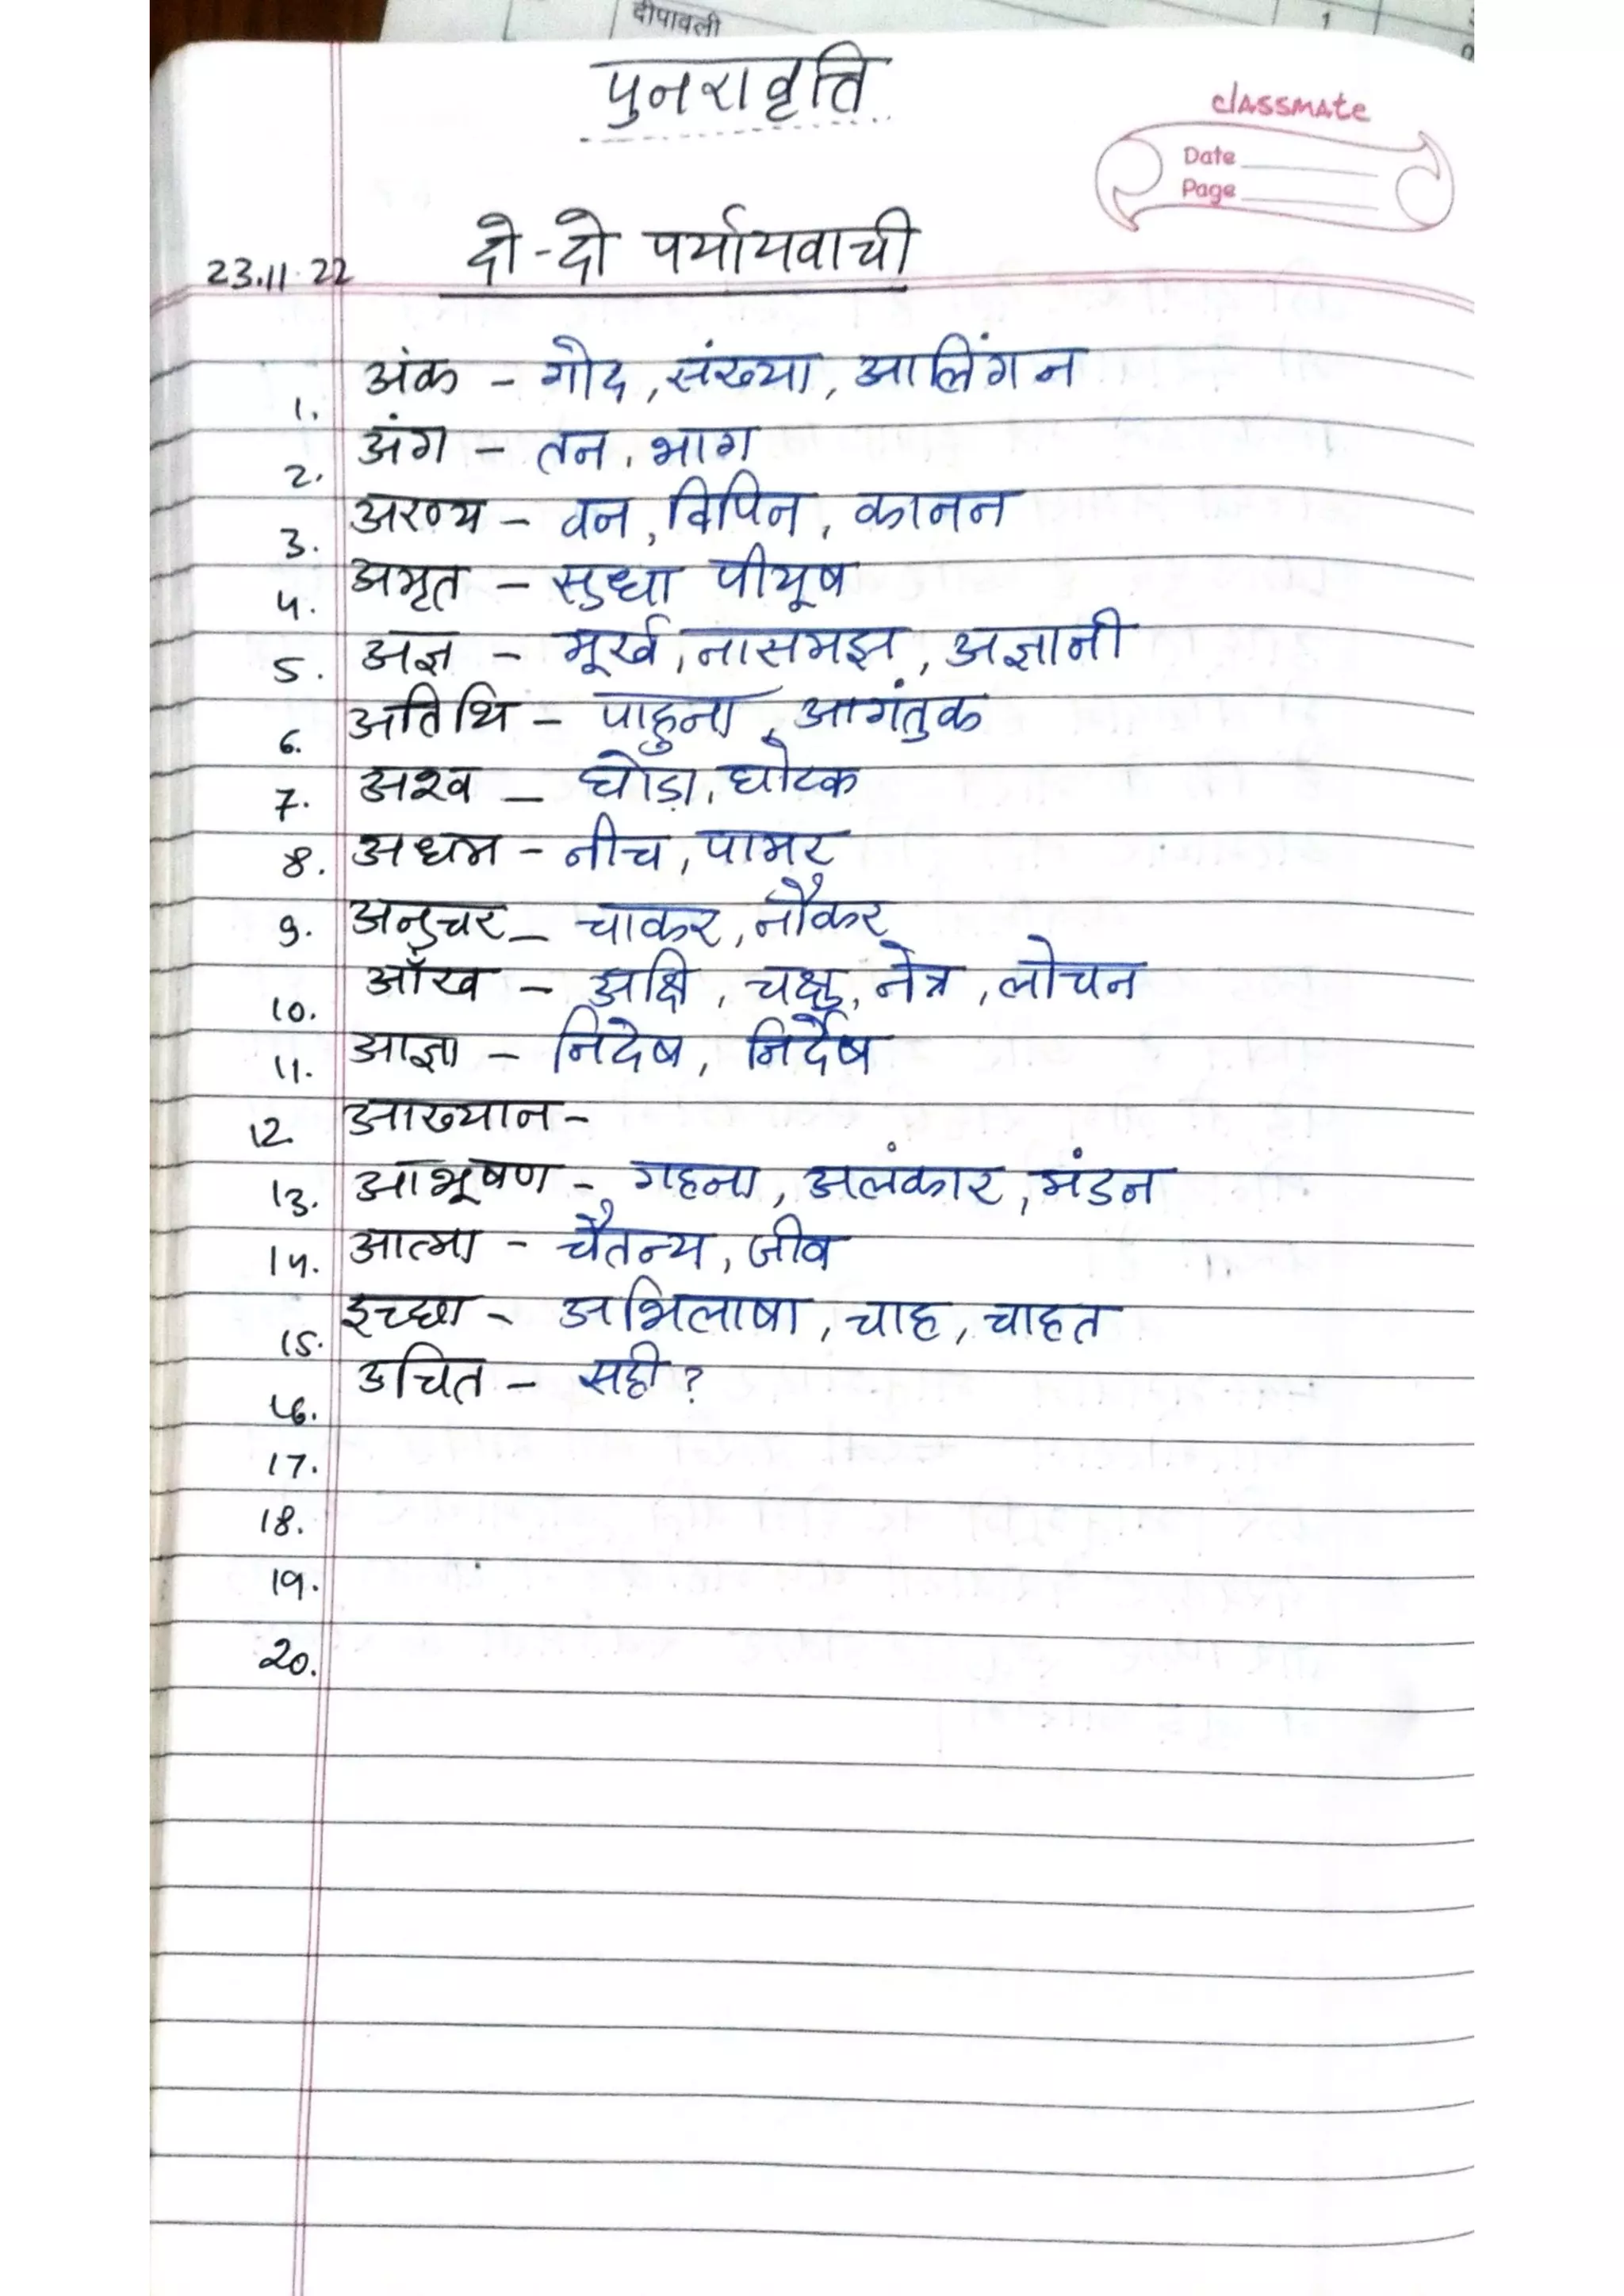 दीपावली
1
पुनरावृत्ति
classmate
Date
Page
23.11.22 दो-दो पर्यायवाची
1. अंक - गोद, संख्या, आलिंगन
2. अंग - तन, भाग
3. अरण्य - वन, विपिन, कानन
4. अमृत - सुधा पीयूष
5. अज्ञ - मूर्ख, नासमझ, अज्ञानी
6. अतिथि - पाहुना, आगंतुक
7. अश्व - घोड़ा, घोटक
8. अधम - नीच, पामर
9. अनुचर - चाकर, नौकर
10. आँख - अक्षि, चक्षु, नेत्र, लोचन
11. आज्ञा - निदेष, निर्देष
12. आख्यान -
13. आभूषण - गहना, अलंकार, मंडन
14. आत्मा - चैतन्य, जीव
15. इच्छा - अभिलाषा, चाह, चाहत
16. उचित - सही?
17.
18.
19.
20.